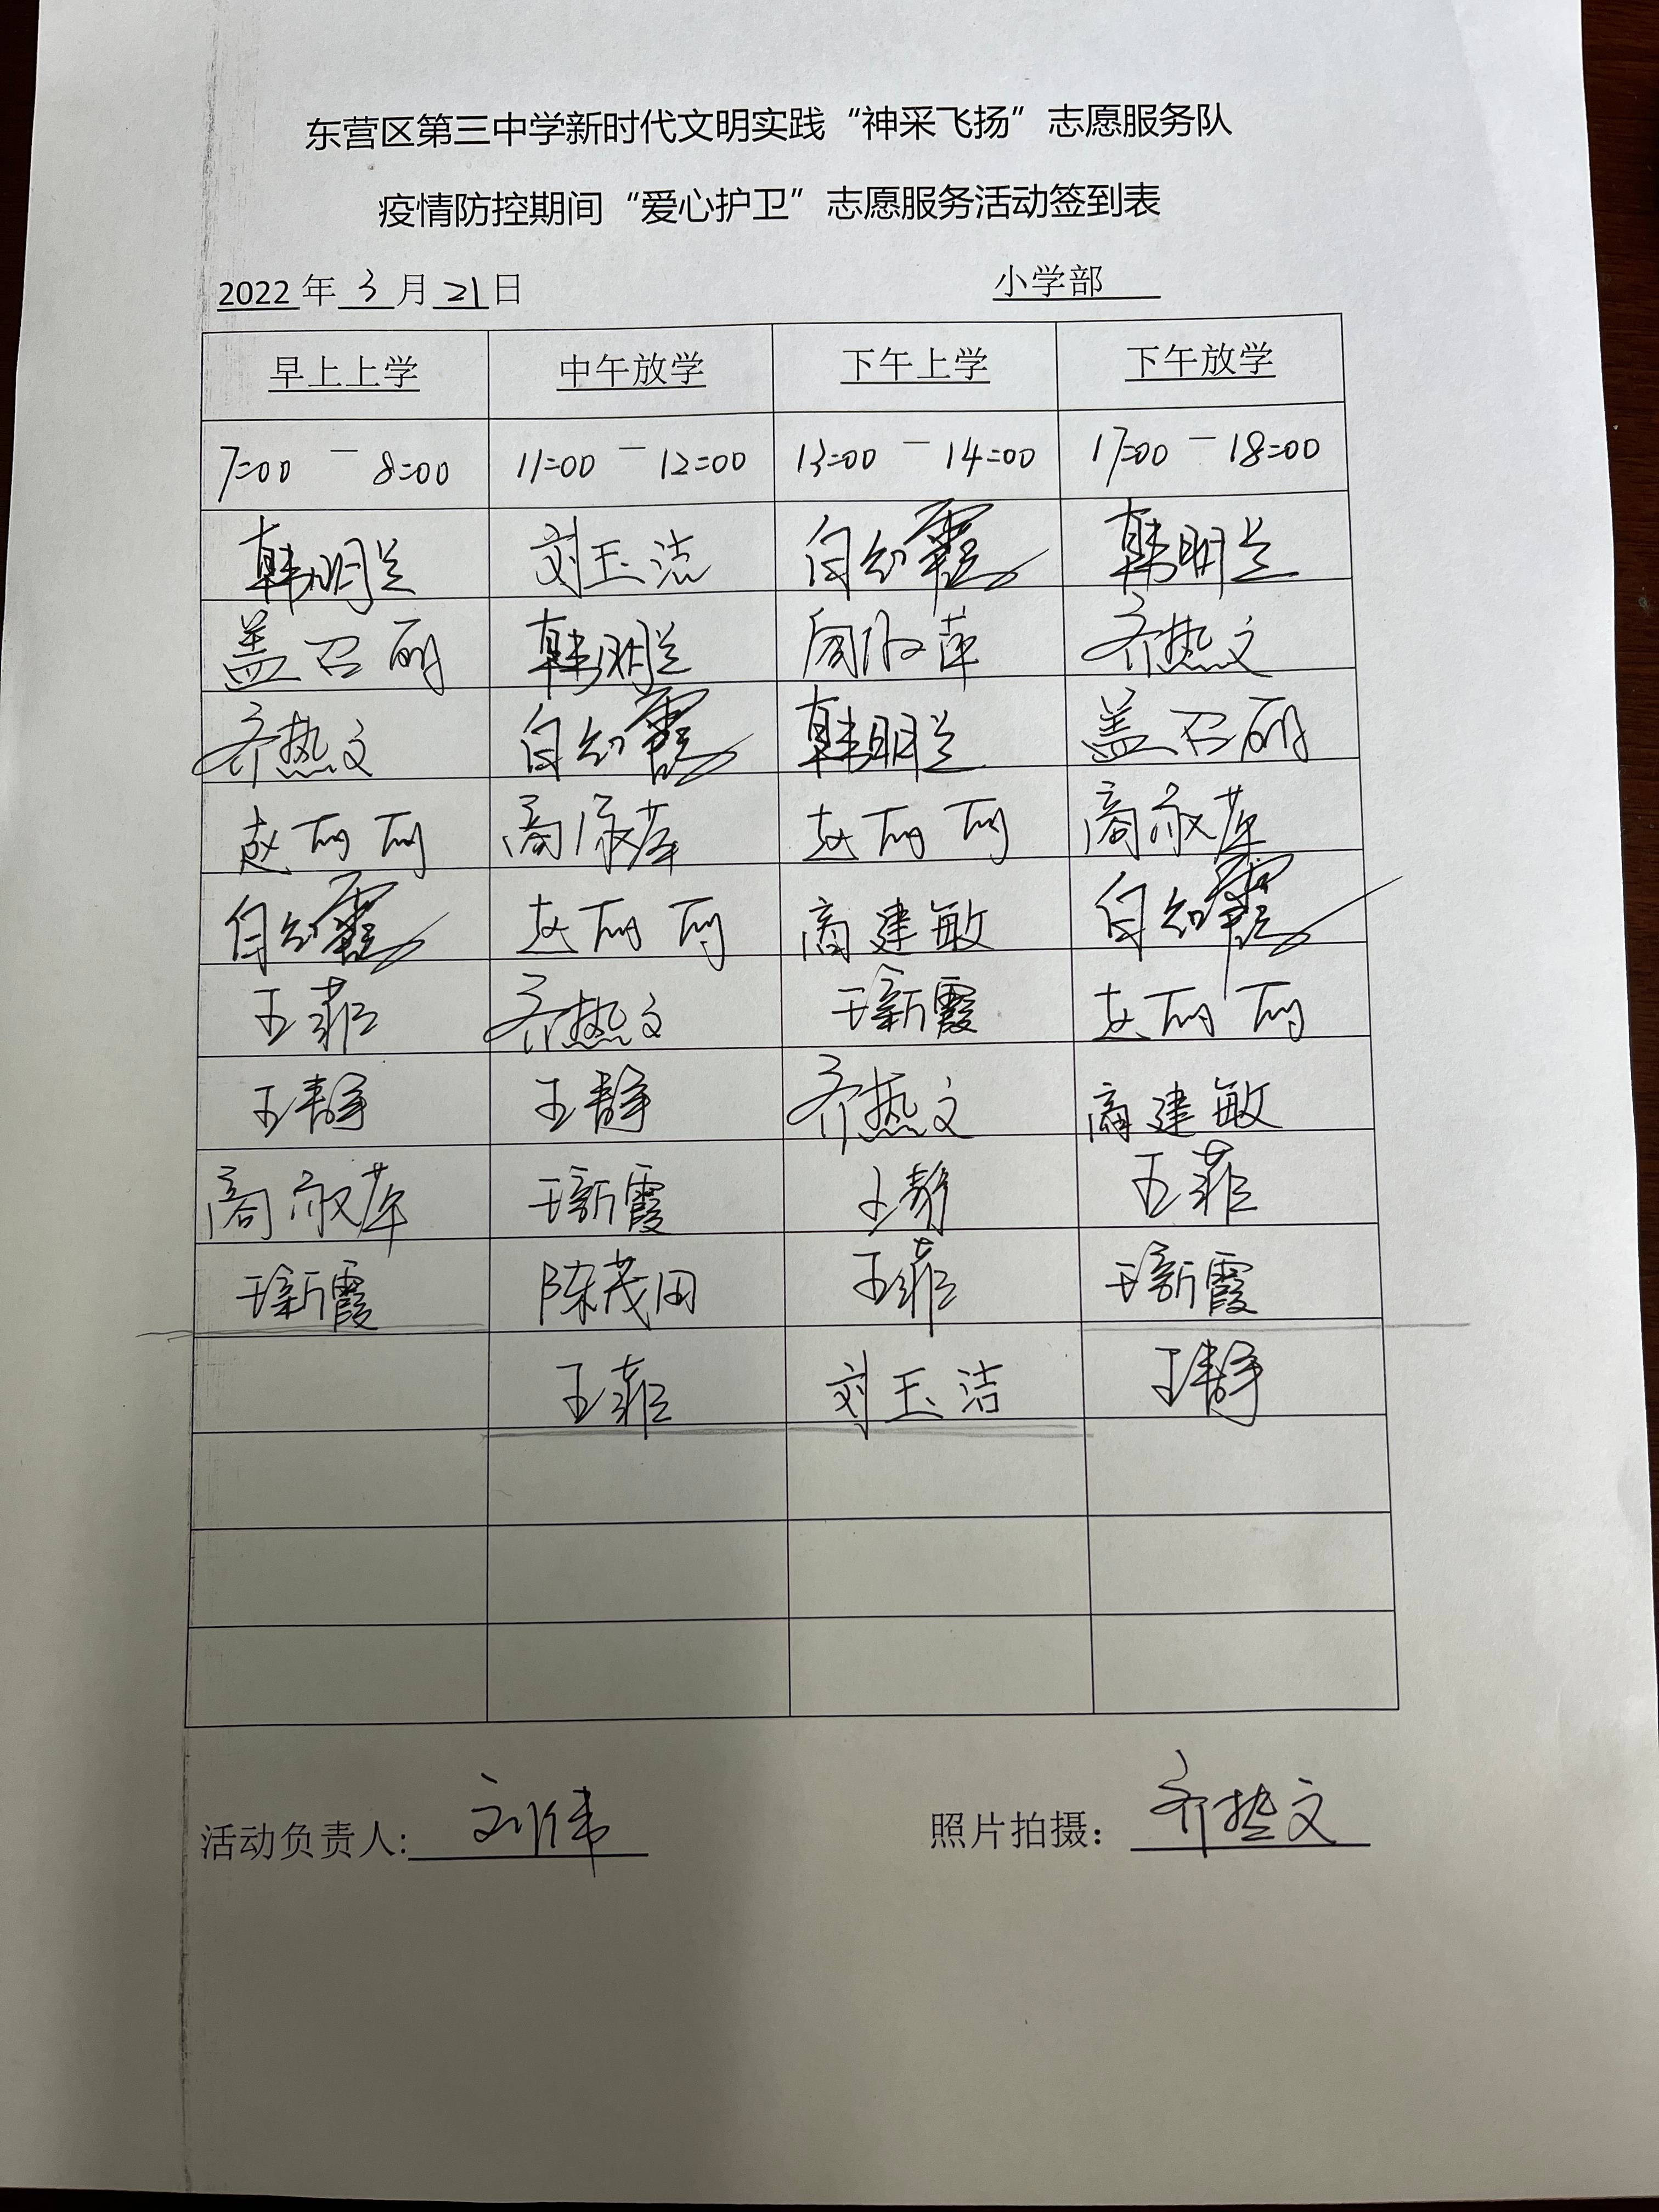 东营区第三中学新时代文明实践“神采飞扬”志愿服务队
疫情防控期间“爱心护卫”志愿服务活动签到表
2022年 3 月 21 日 小学部
早上上学 中午放学 下午上学 下午放学
7:00 — 8:00 11:00 — 12:00 13:00 — 14:00 17:00 — 18:00
韩明兰 刘玉洁 韩明兰
盖召丽 韩明兰 齐热文
齐热文 韩明兰 盖召丽
赵丽丽 赵丽丽
赵丽丽 商建敏
王菲 齐热文 王新霞 赵丽丽
王静 王静 齐热文 商建敏
王新霞 王静 王菲
王新霞 陈茂田 王菲 王新霞
王菲 刘玉洁 王静
活动负责人: 刘伟 照片拍摄： 齐热文